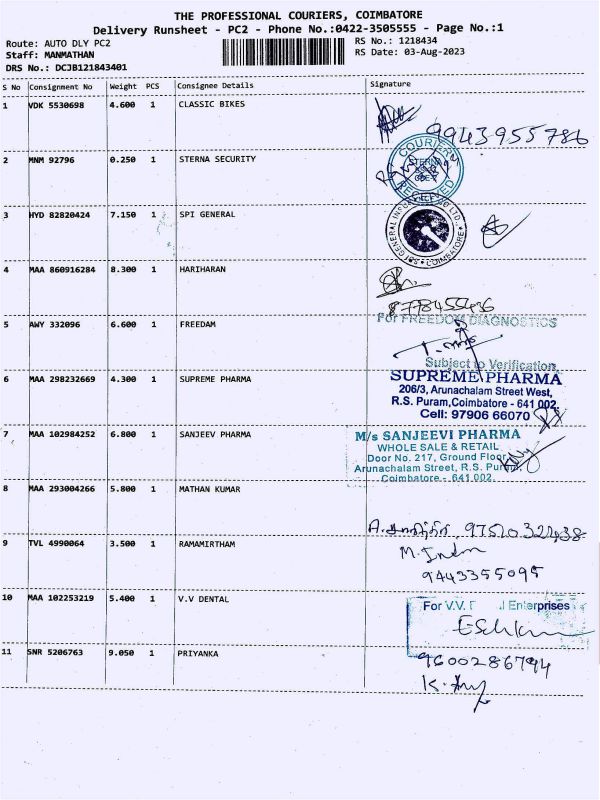 THE PROFESSIONAL COURIERS, COIMBATORE
Delivery Runsheet - PC2 - Phone No.:0422-3505555 - Page No.:1
Route: AUTO DLY PC2 RS No.: 1218434
Staff: MANMATHAN RS Date: 03-Aug-2023
DRS No.: DCJB121843401
S No Consignment No Weight PCS Consignee Details Signature
1 VDK 5530698 4.600 1 CLASSIC BIKES
9943955786
2 MNM 92796 0.250 1 STERNA SECURITY
COURIER
STERNA
RECEIVED
3 HYD 82820424 7.150 1 SPI GENERAL
GENERAL COIMBATORE
4 MAA 860916284 8.300 1 HARIHARAN
5 AWY 332096 6.600 1 FREEDAM
For FREEDOM DIAGNOSTICS
Subject to Verification
6 MAA 298232669 4.300 1 SUPREME PHARMA
SUPREME PHARMA
206/3, Arunachalam Street West,
R.S. Puram,Coimbatore - 641 002.
Cell: 97906 66070
7 MAA 102984252 6.800 1 SANJEEV PHARMA
M/s SANJEEVI PHARMA
WHOLE SALE & RETAIL
Door No. 217, Ground Floor
Arunachalam Street, R.S. Puram,
Coimbatore - 641 002.
8 MAA 293004266 5.800 1 MATHAN KUMAR
9 TVL 4990064 3.500 1 RAMAMIRTHAM
9443355095
10 MAA 102253219 5.400 1 V.V DENTAL
For V.V. Enterprises
11 SNR 5206763 9.050 1 PRIYANKA
9600286794